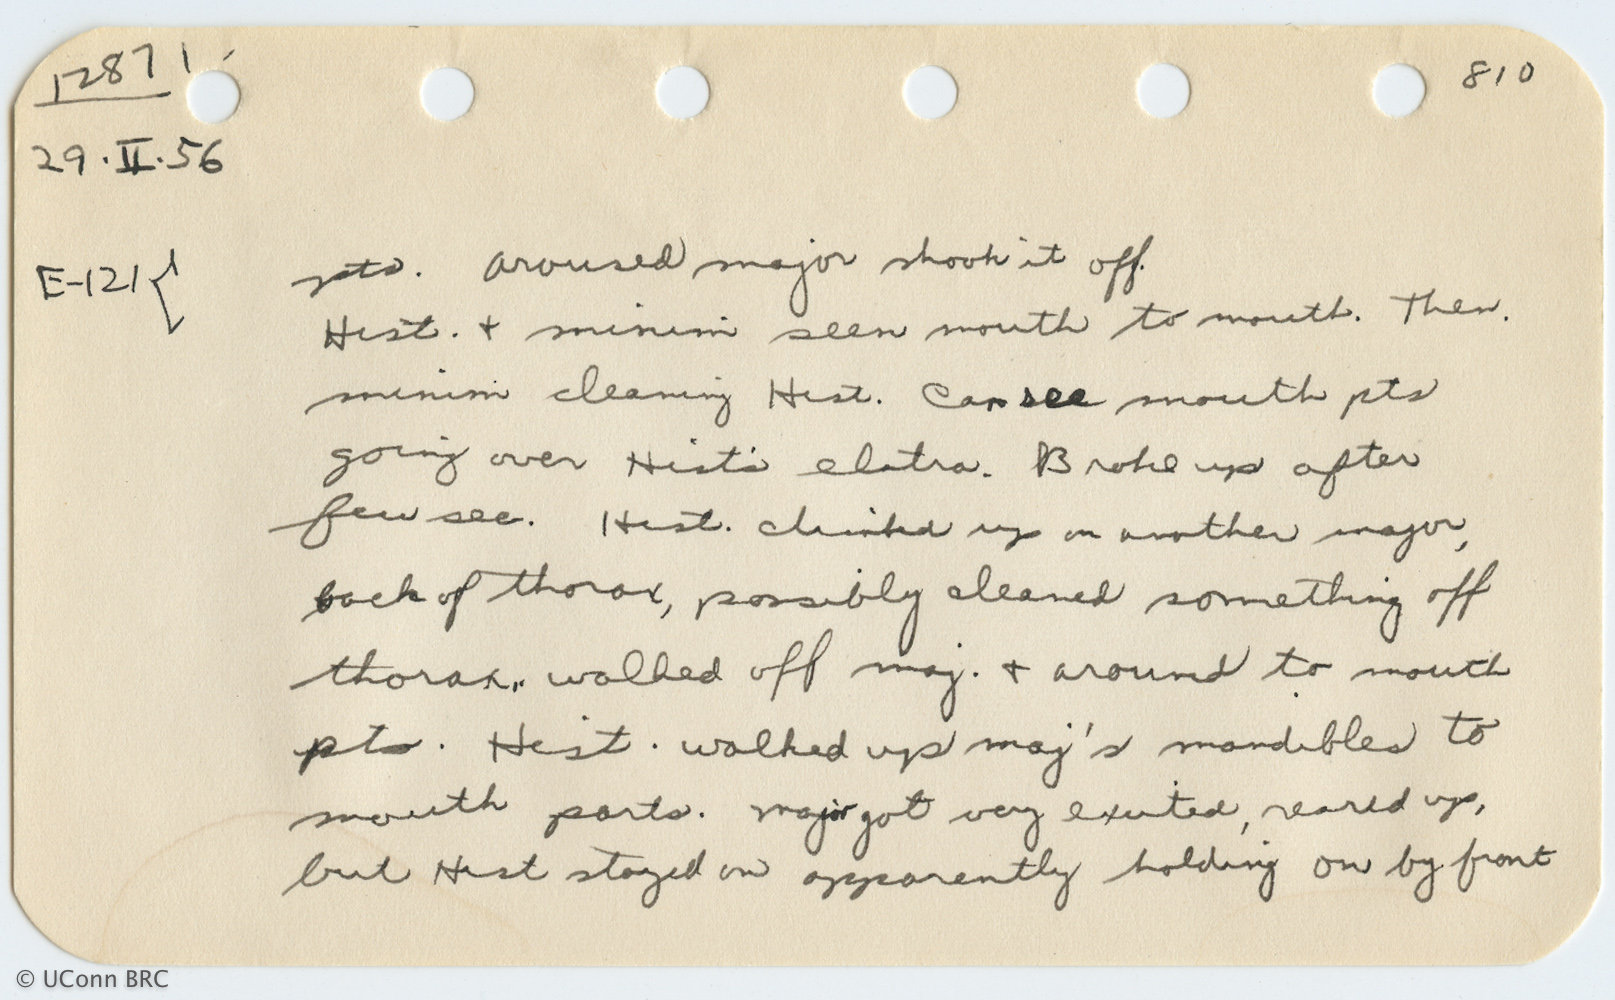 12871
810
29.II.56
E-121{
pts. Aroused major shook it off.
Hist. + minim seen mouth to mouth. Then.
minim cleaning Hist. Can see mouth pts
going over Hist's elatra. Broke up after
few sec. Hist. climbed up on another major,
back of thorax, possibly cleaned something off
thorax, walked off maj. + around to mouth
pts. Hist. walked up maj's mandibles to
mouth parts. Major got very excited, reared up,
but Hist stayed on apparently holding on by front
© UConn BRC